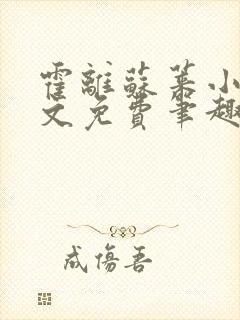 霍離蘇慕小
文免費筆趣
成傷吾